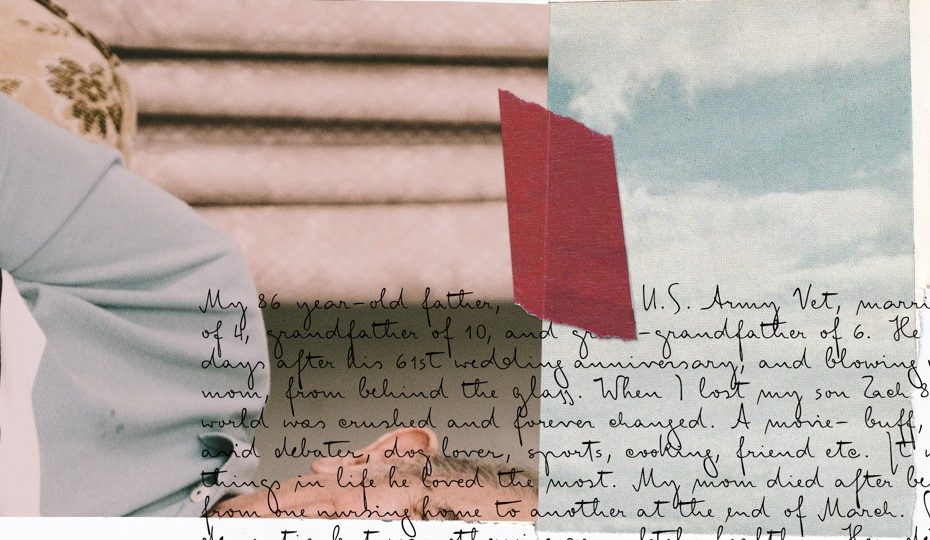 My 86 year-old father, U.S. Army Vet,
of 4, grandfather of 10, and -grandfather of 6. He
days after his 61st wedding anniversary, and blowing
mom, from behind the glass. When I lost my son Zach
world was crushed and forever changed. A movie- buff,
avid debater, dog lover, sports, cooking, friend etc. It
things in life he loved the most. My mom died after
from one nursing home to another at the end of March.